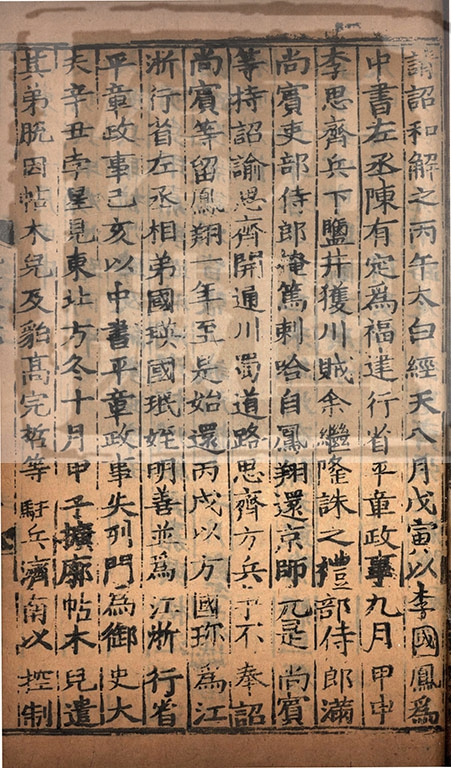 請詔和解之丙午太白經天八月戊寅以李國鳳爲
中書左丞陳有定爲福建行省平章政事九月甲申
李思齊兵下鹽井獲川賊余繼隆誅之禮部侍郎滿
尚賓吏部侍郎掩篤剌哈自鳳翔還京師先是尚賓
等持詔諭思齊開通川蜀道路思齊方兵爭不奉詔
尚賓等留鳳翔一年至是始還丙戌以方國珍爲江
浙行省左丞相弟國瑛國珉姪明善並爲江浙行省
平章政事己亥以中書平章政事失列門爲御史大
夫辛丑孛星見東北方冬十月甲子擴廓帖木兒遣
其弟脫因帖木兒及貊髙完哲等駐兵濟南以控制